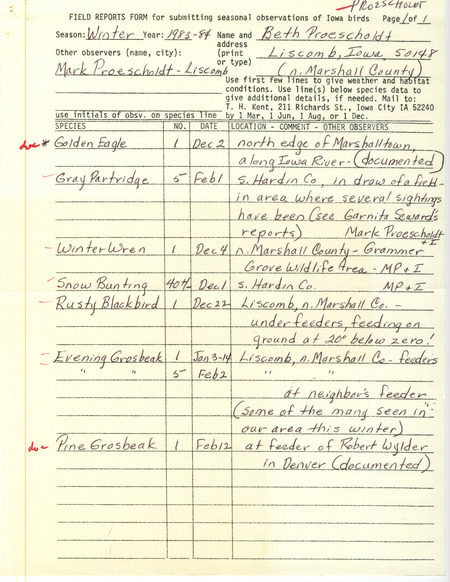 PROESCHOLDT
FIELD REPORTS FORM for submitting seasonal observations of Iowa birds Page 1 of 1
Season: Winter Year: 1983-84 Name and Beth Proescholdt
address
Other observers (name, city): (print Liscomb, Iowa 50148
or type)
Mark Proescholdt - Liscomb (n. Marshall County)
Use first few lines to give weather and habitat
conditions. Use line(s) below species data to
give additional details, if needed. Mail to:
T. H. Kent, 211 Richards St., Iowa City IA 52240
use initials of obsv. on species line by 1 Mar, 1 Jun, 1 Aug, or 1 Dec.
SPECIES NO. DATE LOCATION - COMMENT - OTHER OBSERVERS
doc * Golden Eagle 1 Dec 2 north edge of Marshalltown,
along Iowa River - (documented)
- Gray Partridge 5 Feb 1 s. Hardin Co., in draw of a field -
in area where several sightings
have been (see Garnita Seward's
reports) Mark Proescholdt
+ I
- Winter Wren 1 Dec 4 n. Marshall County - Grammer
Grove Wildlife Area - MP + I
- Snow Bunting 40+ Dec 1 s. Hardin Co. MP + I
- Rusty Blackbird 1 Dec 22 Liscomb, n. Marshall Co. -
under feeders, feeding on
ground at 20° below zero!
- Evening Grosbeak 1 Jan 3-14 Liscomb, n. Marshall Co - feeders
" " 5 Feb 2 " "
at neighbor's feeder
(some of the many seen in
our area this winter)
doc Pine Grosbeak 1 Feb 12 at feeder of Robert Wylder
in Denver (documented)